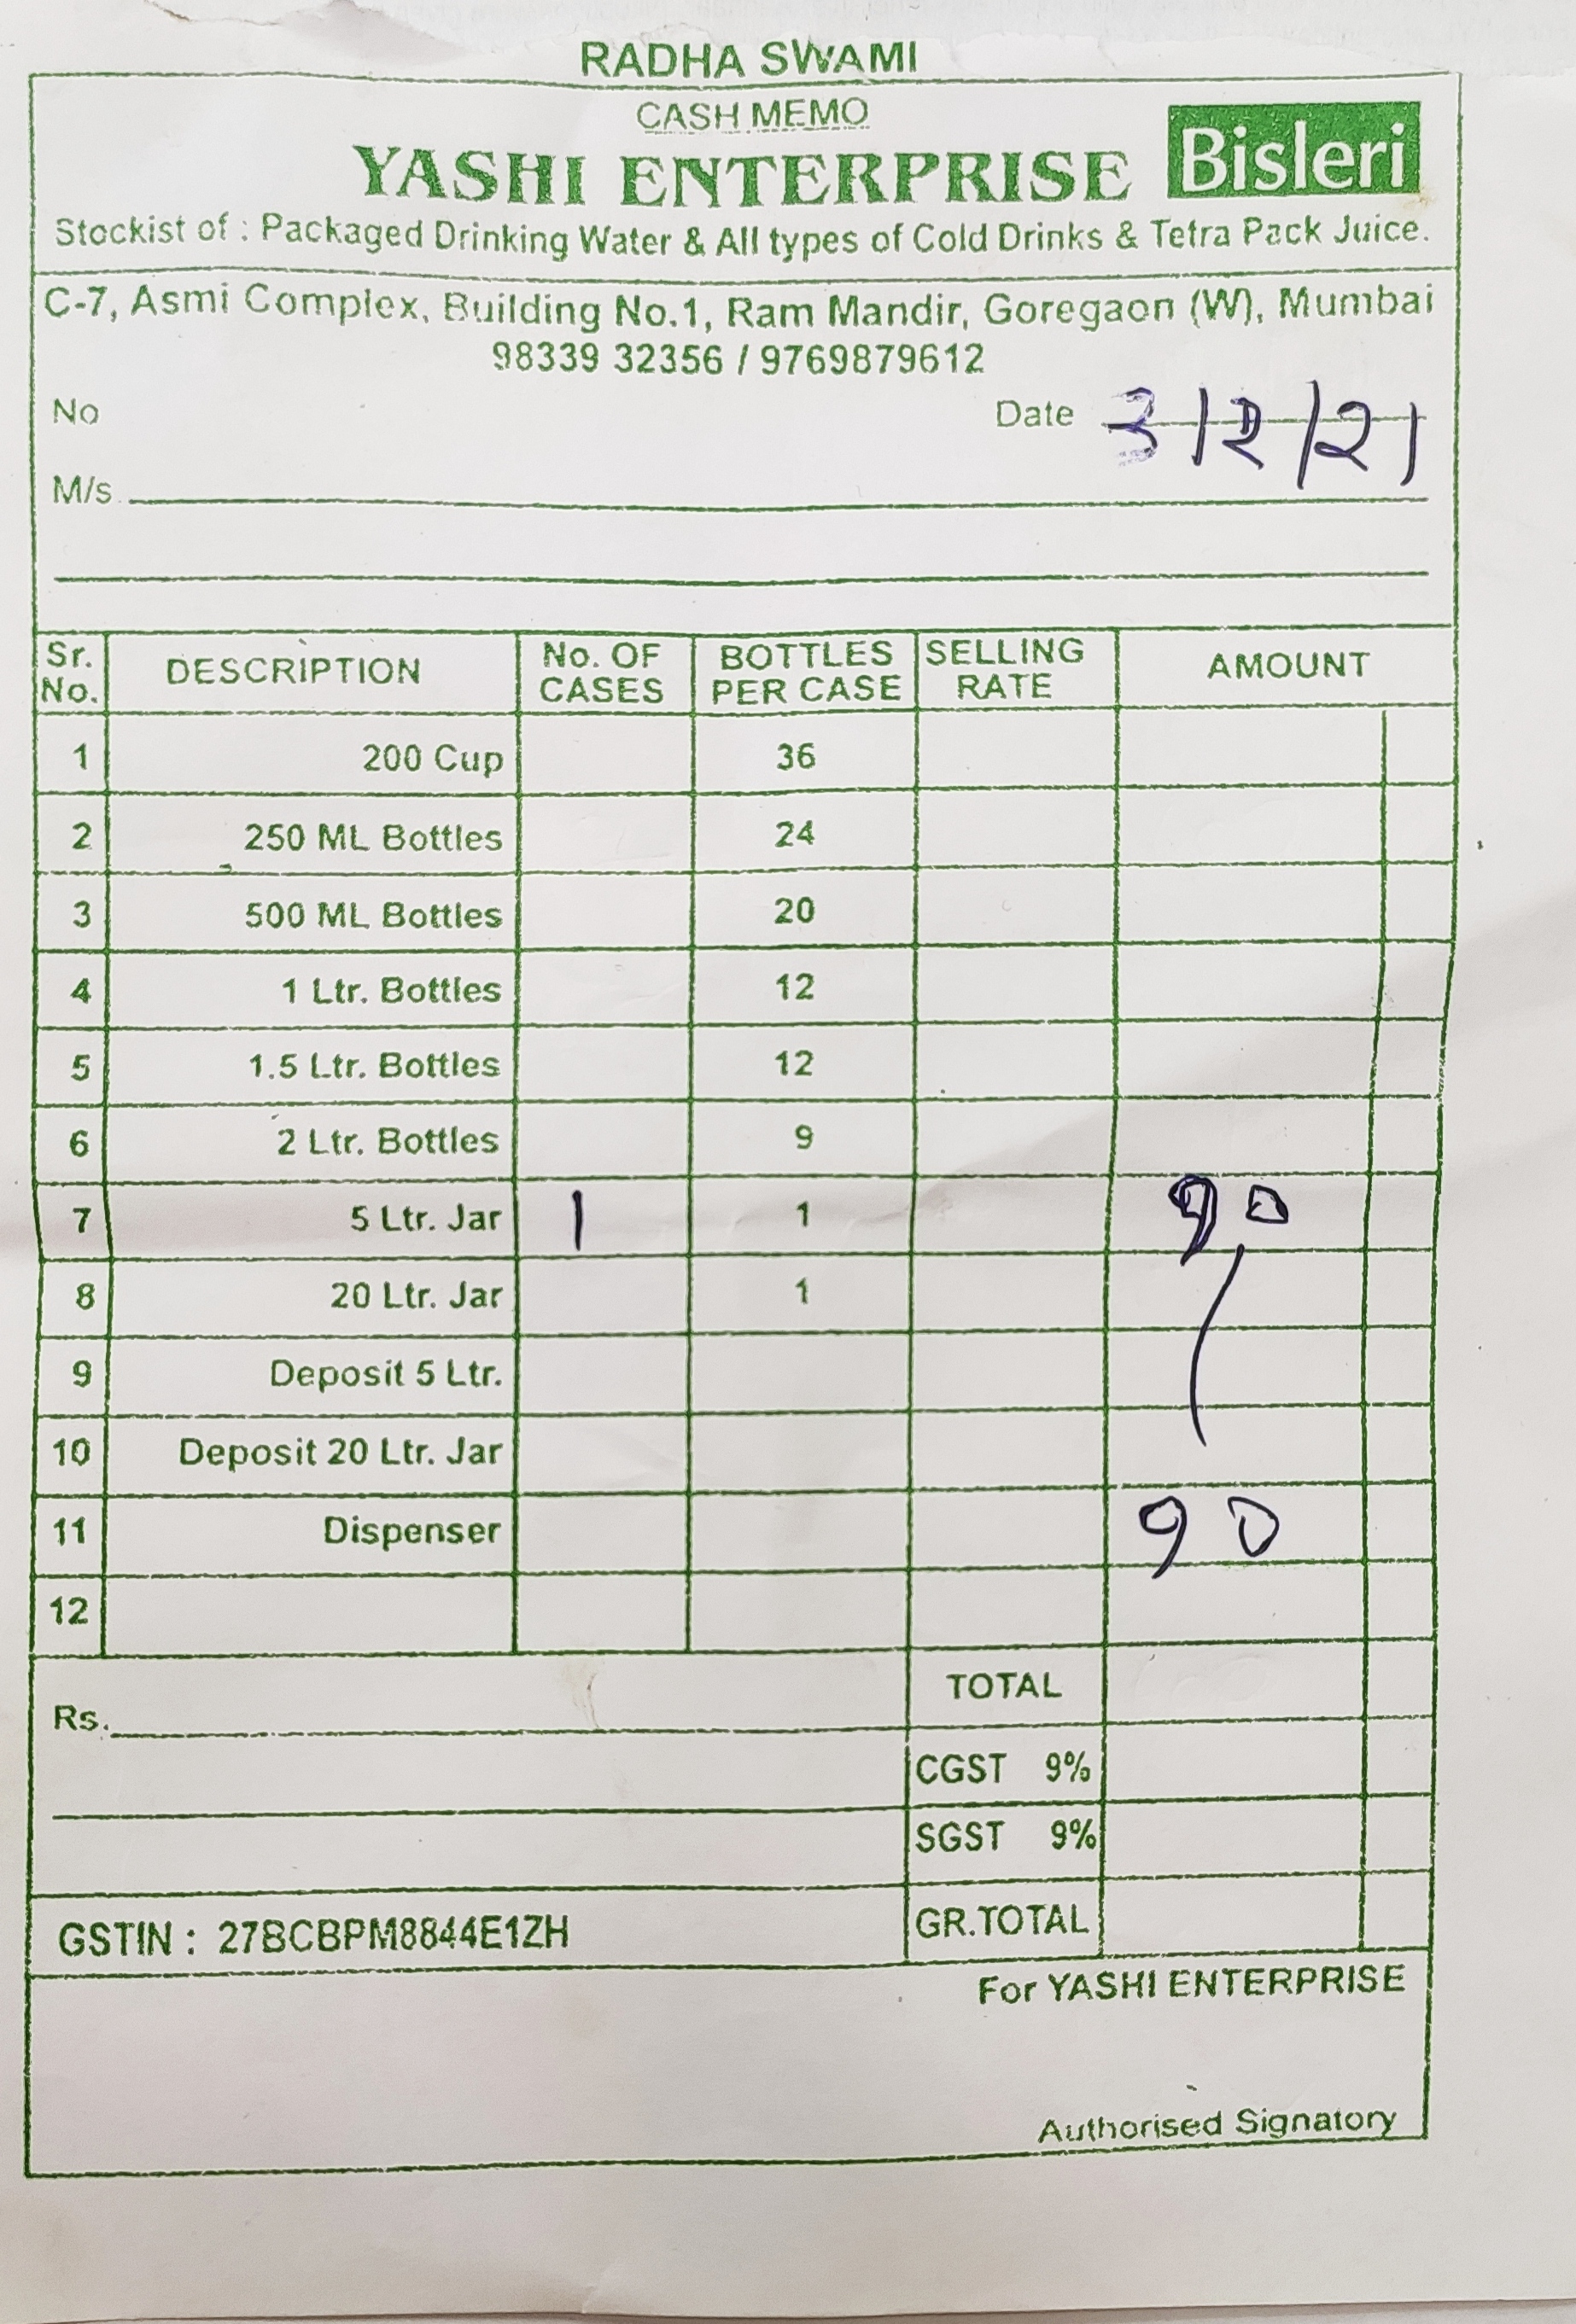 RADHA SWAMI
CASH MEMO
YASHI ENTERPRISE Bisleri
Stockist of : Packaged Drinking Water & All types of Cold Drinks & Tetra Pack Juice.
C-7, Asmi Complex, Building No.1, Ram Mandir, Goregaon (W), Mumbai
98339 32356 / 9769879612
No Date 3/2/21
M/s.
Sr. No. DESCRIPTION No. OF CASES BOTTLES PER CASE SELLING RATE AMOUNT
1 200 Cup 36
2 250 ML Bottles 24
3 500 ML Bottles 20
4 1 Ltr. Bottles 12
5 1.5 Ltr. Bottles 12
6 2 Ltr. Bottles 9
7 5 Ltr. Jar 1 1 90
8 20 Ltr. Jar 1
9 Deposit 5 Ltr.
10 Deposit 20 Ltr. Jar
11 Dispenser 90
12
TOTAL
Rs.
CGST 9%
SGST 9%
GSTIN : 27BCBPM8844E1ZH GR.TOTAL
For YASHI ENTERPRISE
Authorised Signatory